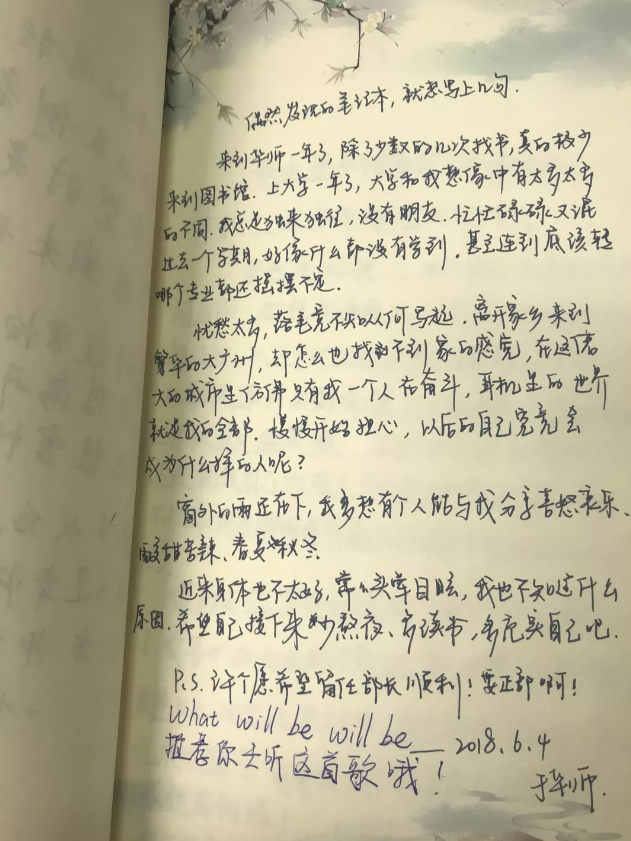 偶然发现的笔记本，就想写上几句.
来到华师一年了，除了少数的几次找书，真的极少
来到图书馆. 上大学一年了，大学和我想像中有太多太多
的不同. 我总是独来独往，没有朋友. 忙忙碌碌又混
过去一个学期，好像什么都没有学到. 甚至连到底该转
哪个专业都还摇摆不定.
忧愁太多，落笔竟不知从何写起. 离开家乡来到
繁华的大广州，却怎么也找不到家的感觉，在这偌
大的城市里仿佛只有我一个人在奋斗，耳机里的世界
就是我的全部. 慢慢开始担心，以后的自己究竟会
成为什么样的人呢？
窗外的雨还在下，我多想有个人能与我分享喜怒哀乐、
酸甜苦辣、春夏秋冬
近来身体也不太好，常常头晕目眩，我也不知这什么
原因. 希望自己接下来少熬夜、多读书，多充实自己吧.
P.S. 许个愿希望留任部长顺利！要正部啊！
What will be will be__ 2018.6.4
推荐你去听这首歌哦！ 于华师.